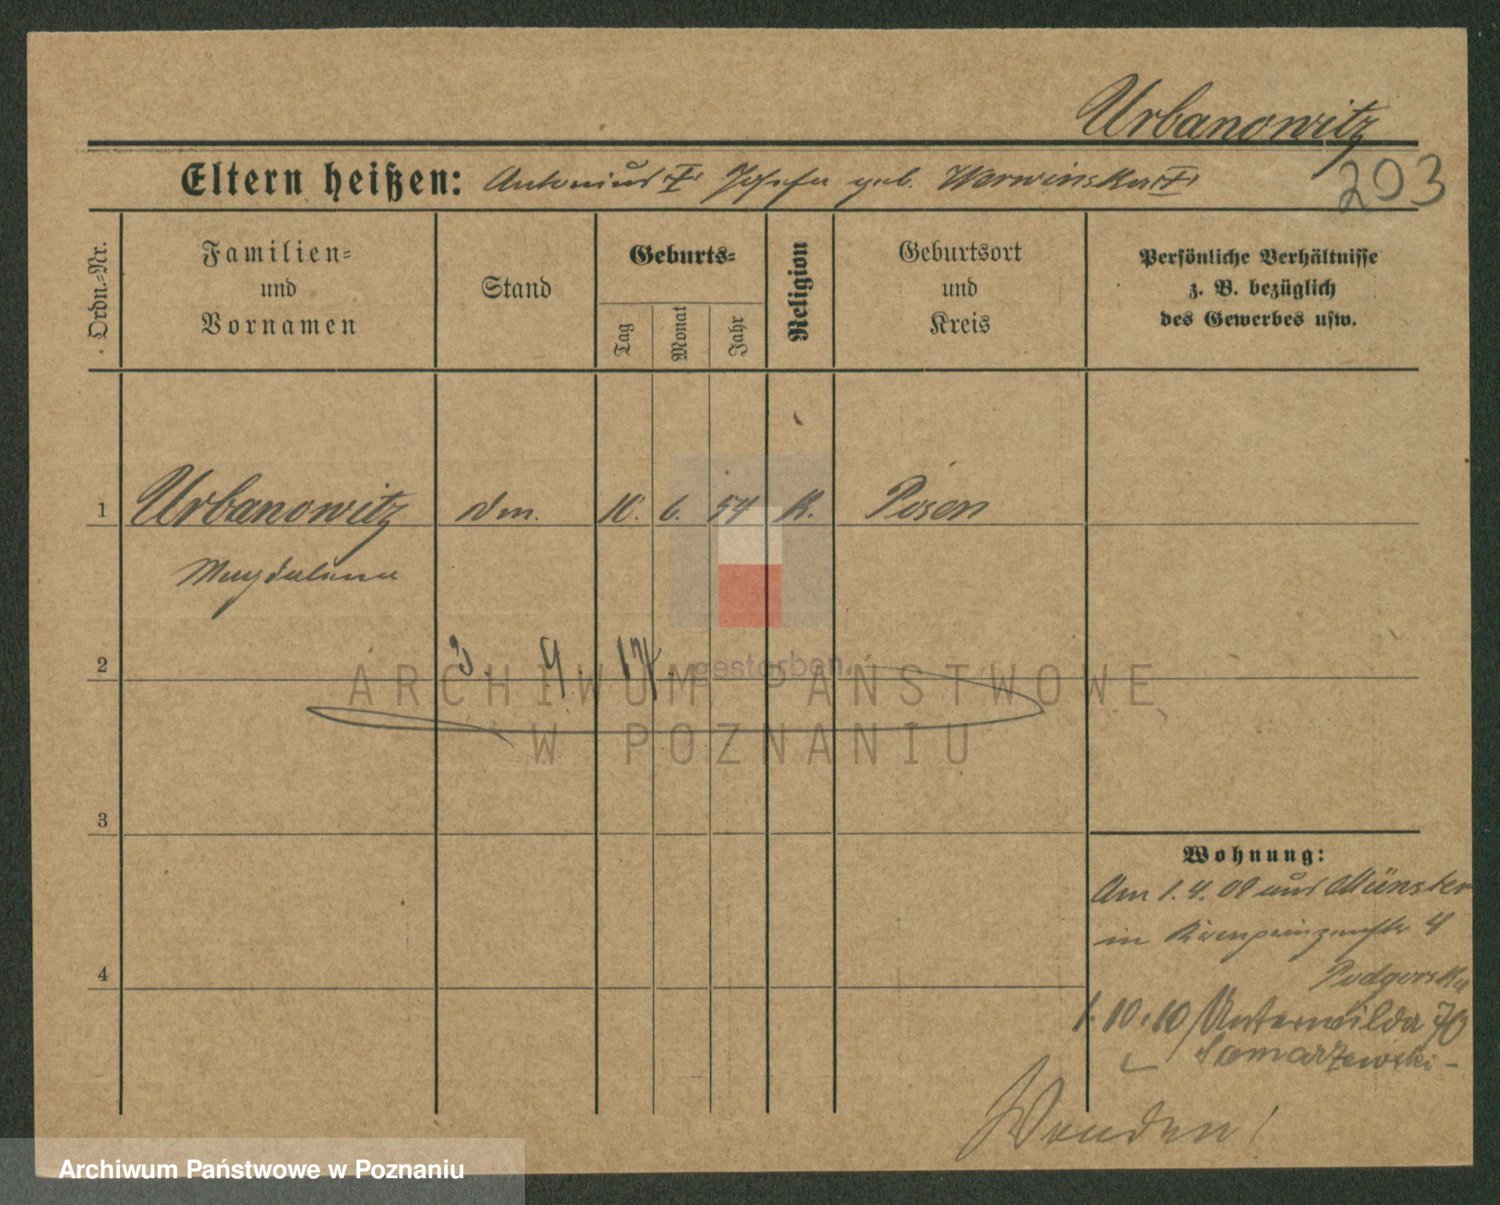 Urbanowitz
203
Eltern heißen: Antonius geb.
Ordn.-Nr.
Familien- und Vornamen
Stand
Geburts-
Tag
Monat
Jahr
Religion
Geburtsort und Kreis
Persönliche Verhältnisse
z. B. bezüglich
des Gewerbes usw.
1 Urbanowitz 6. 54 K. Posen
Magdalena
2 3. 4. 17. gestorben.
ARCHIWUM PAŃSTWOWE
W POZNANIU
3
Wohnung:
Am 1.4.09 aus Münster
in 4
Podgorska
4
1.10.10 Unterwilda 70
Samarzewski
Wenden!
Archiwum Państwowe w Poznaniu